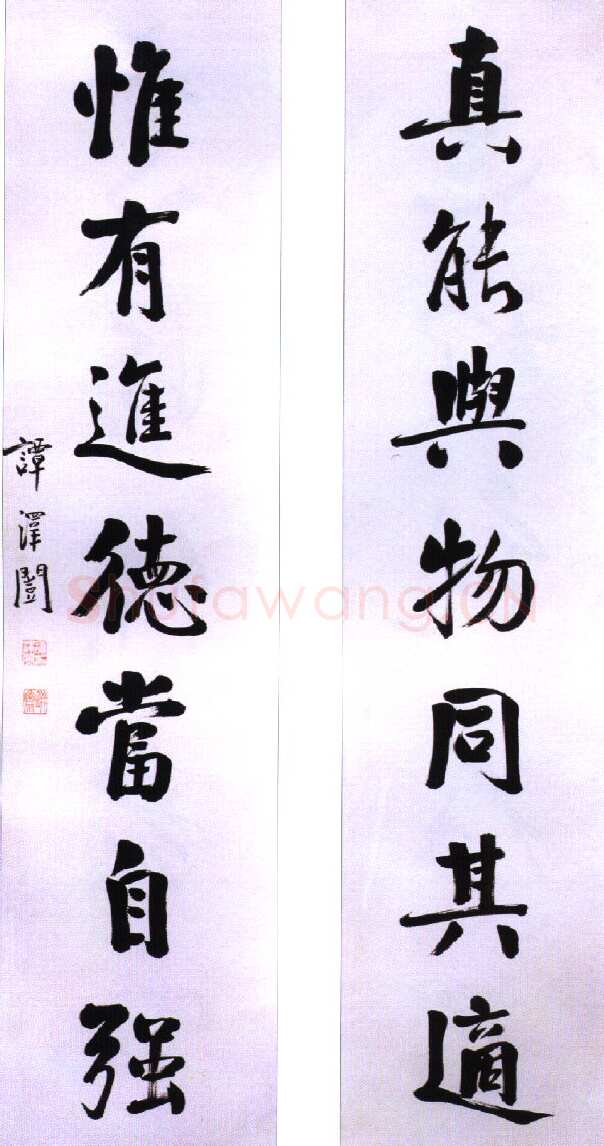 真能與物同其適
惟有進德當自强
譚澤闓
Shufawang.CN